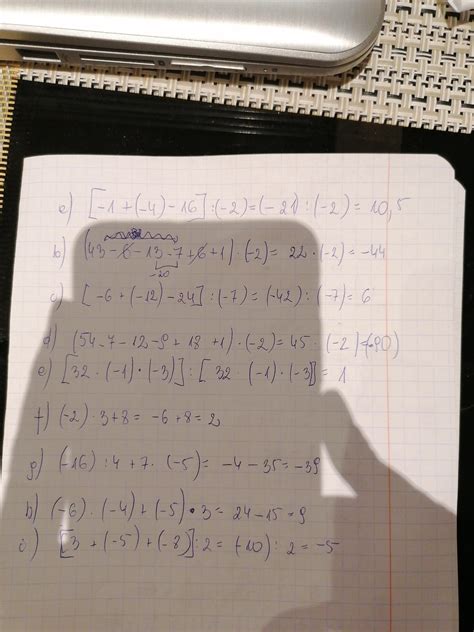 a) [-1 + (-4) - 16] : (-2) = (-21) : (-2) = 10,5
b) (43 - 6 - 13 - 7 + 6 + 1) · (-2) = 22 · (-2) = -44
-20
c) [-6 + (-12) - 24] : (-7) = (-42) : (-7) = 6
d) (54 - 7 - 12 - 9 + 18 + 1) · (-2) = 45 · (-2) = (-90)
e) [32 · (-1) · (-3)] : [32 · (-1) · (-3)] = 1
f) (-2) · 3 + 8 = -6 + 8 = 2
g) (-16) : 4 + 7 · (-5) = -4 - 35 = -39
h) (-6) · (-4) + (-5) · 3 = 24 - 15 = 9
i) [3 + (-5) + (-8)] : 2 = (-10) : 2 = -5